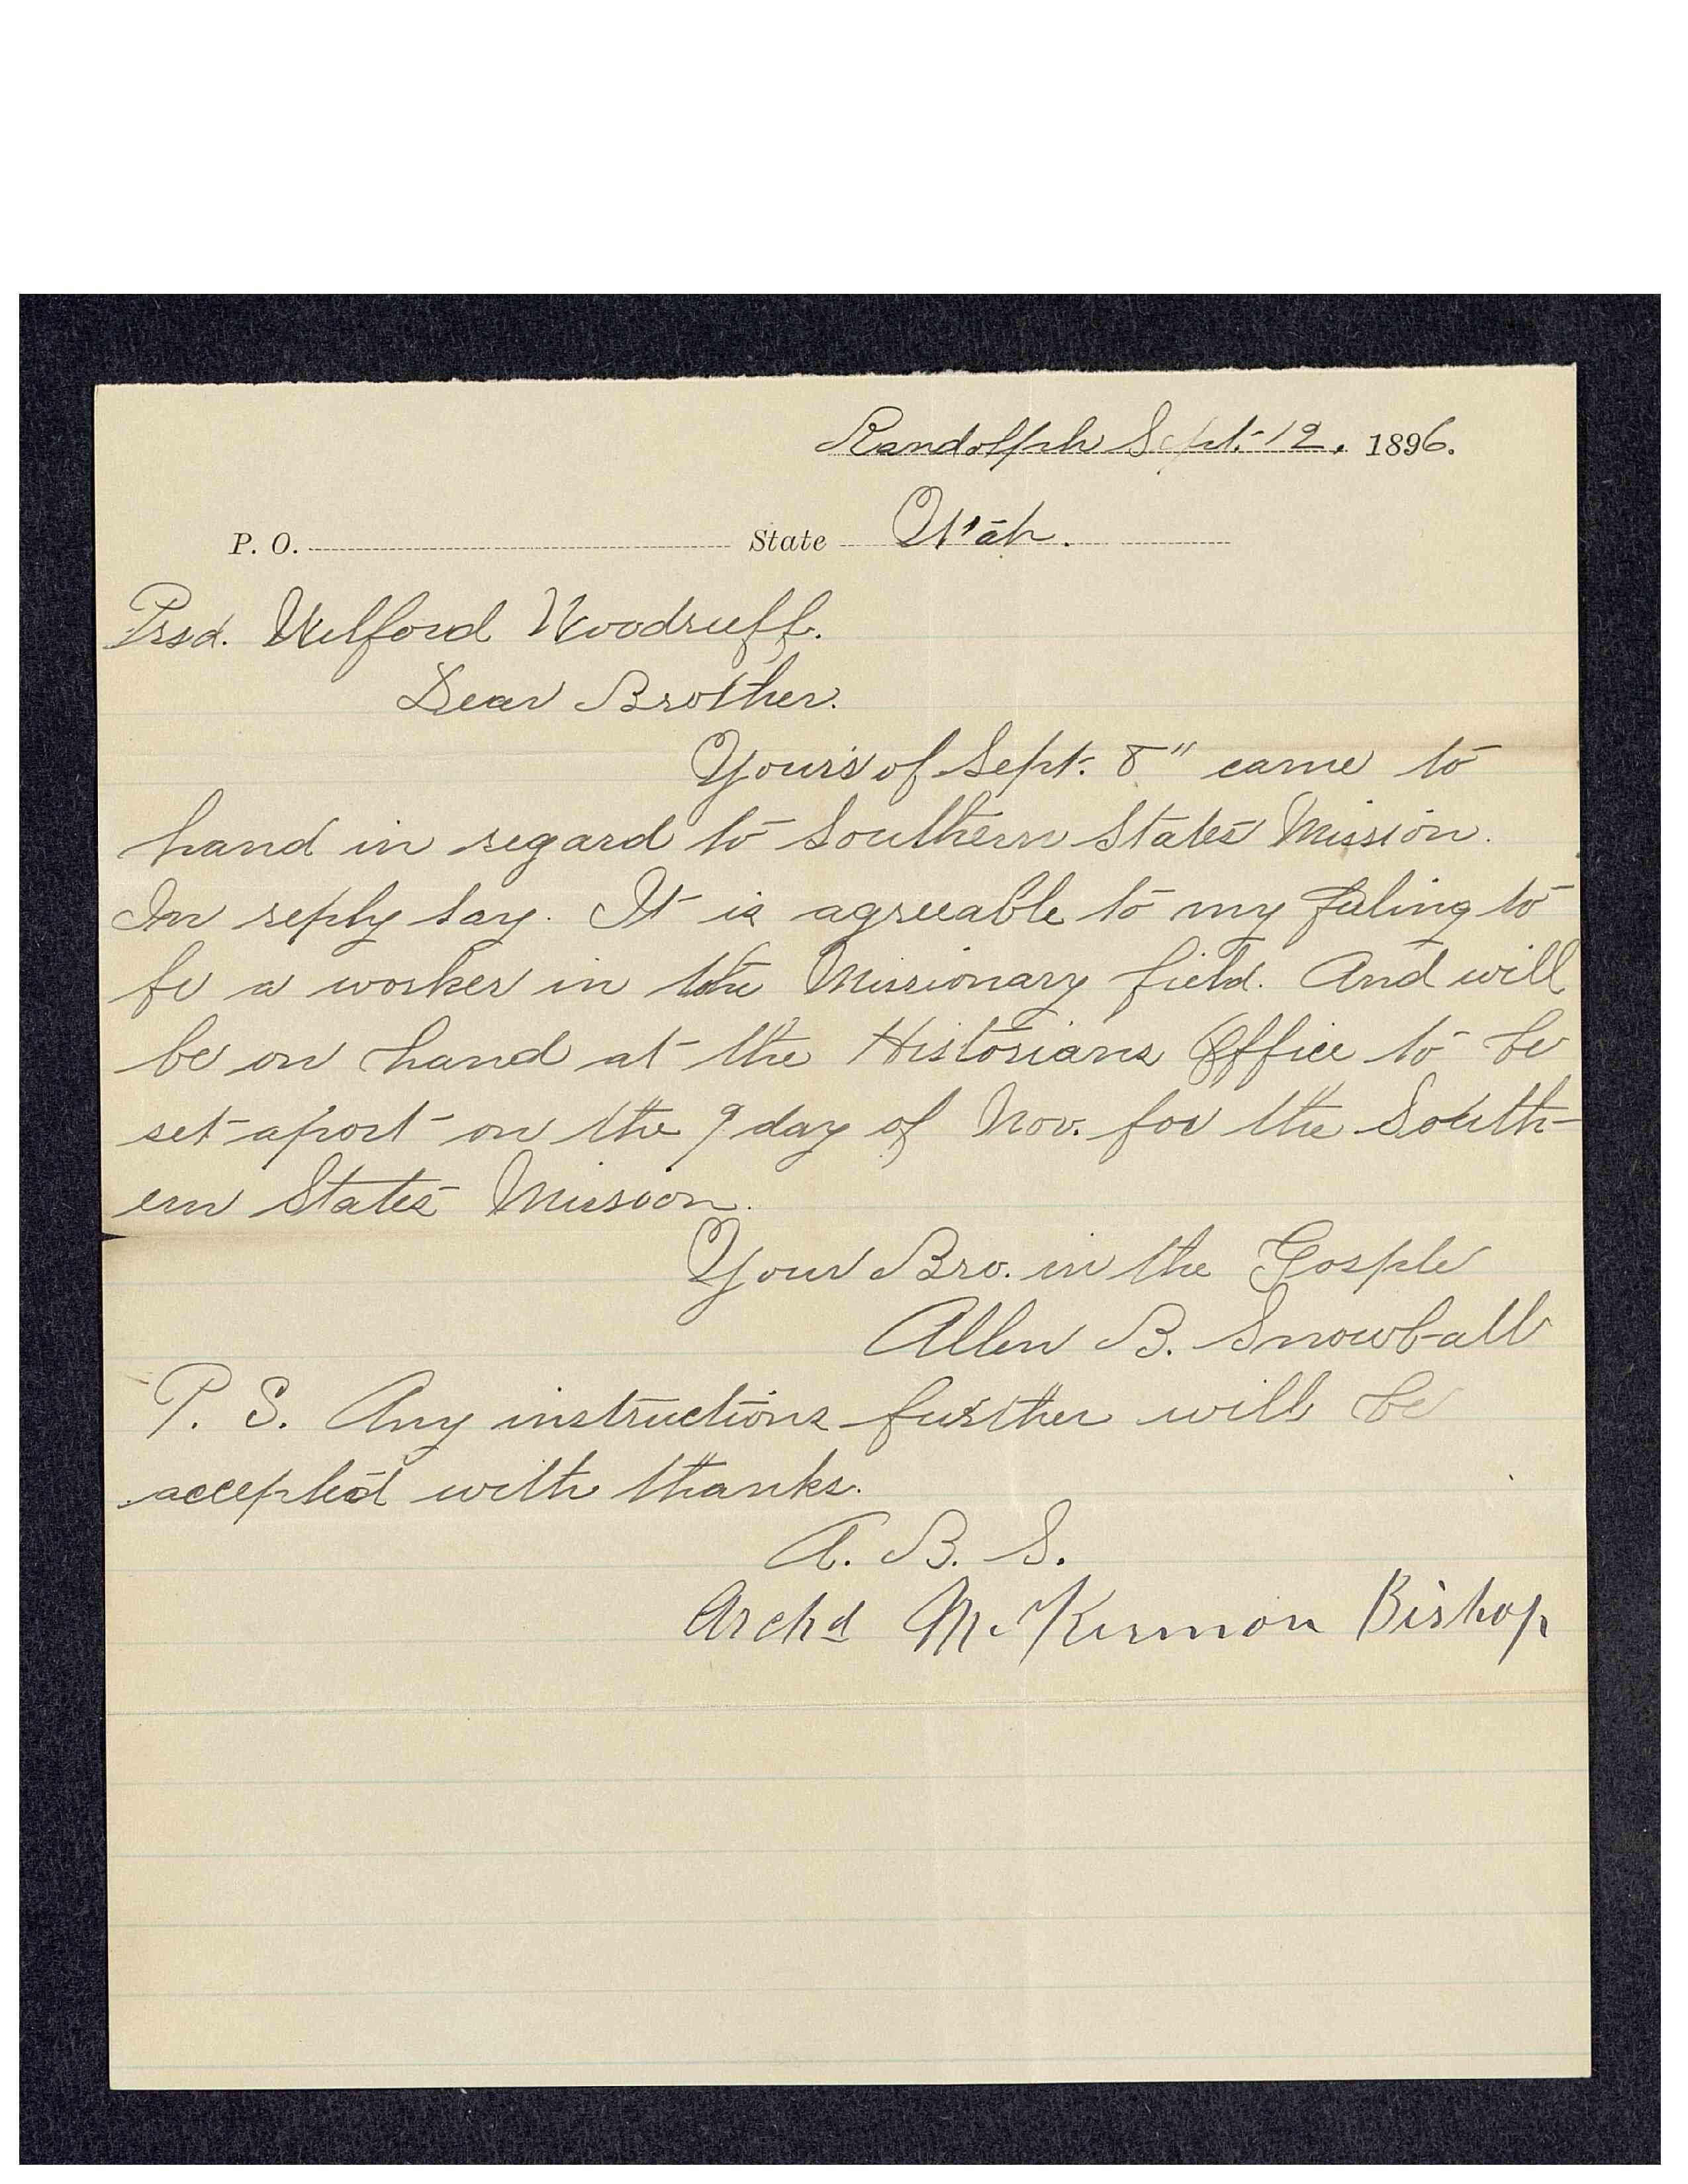 Randolph Sept. 12, 1896.
P. O. State Utah.
Prsd. Wilford Woodruff.
Dear Brother.
Yours of Sept. 8" came to
hand in regard to Southern States Mission.
In reply say. It is agreeable to my feling to
be a worker in the Missionary field. And will
be on hand at the Historians Office to be
set aport on the 9 day of Nov. for the South-
ern States Missoon.
Your Bro. in the Gosple
Allen B. Snowball
P. S. Any instructions further will be
accepted with thanks.
A. B. S.
Archd McKinnon Bishop